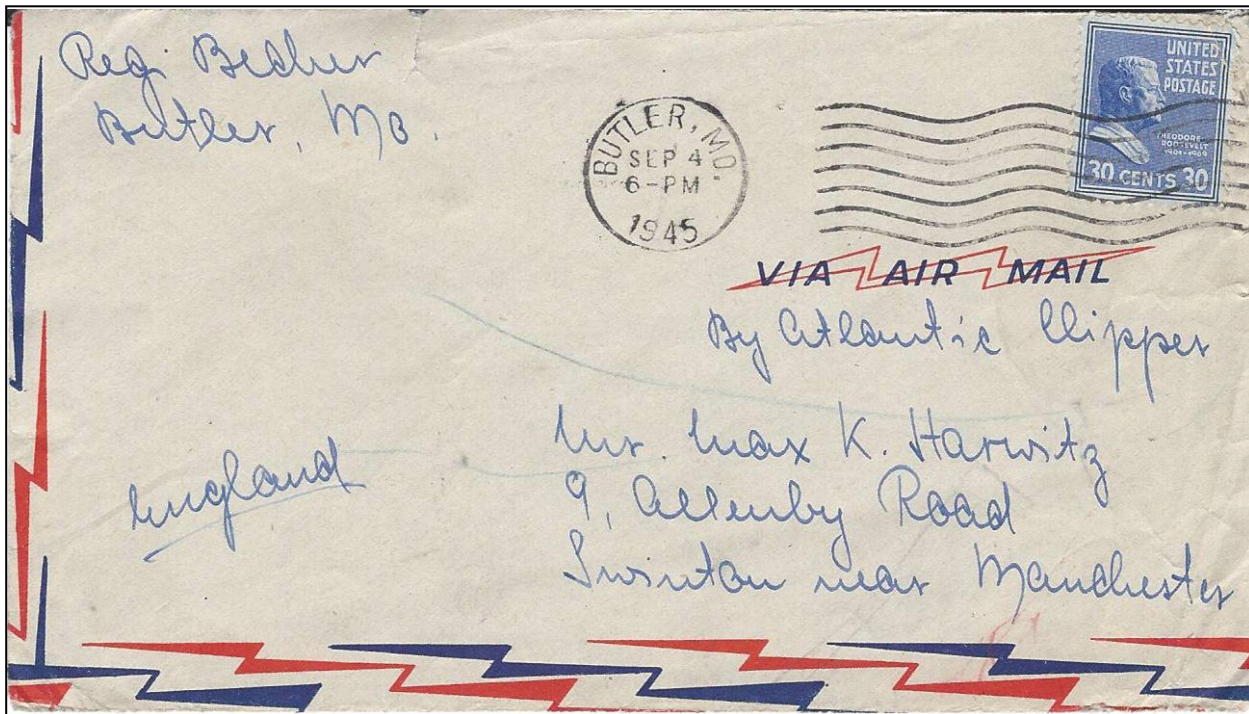 Reg. Becher
Butler, Mo.
BUTLER, MO.
SEP 4
6-PM
1945
UNITED
STATES
POSTAGE
THEODORE
ROOSEVELT
1901-1909
30 CENTS 30
VIA AIR MAIL
By Atlantic Clipper
Mr. Max K. Harwitz
9, Allenby Road
Swinton near Manchester
England